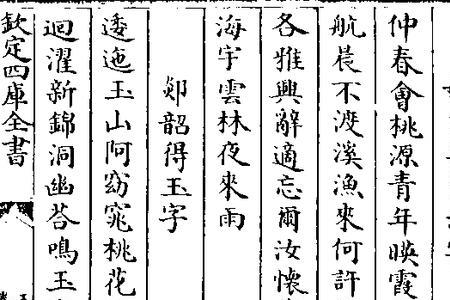 仲春會桃源青年暎霞
航晨不渡溪漁來何許
各雅興辭適忘爾汝懐
海宇雲林夜來雨
郯韶得玉字
逶迤玉山阿窈窕桃花
迴濯新錦洞幽荅鳴玉
欽定四庫全書